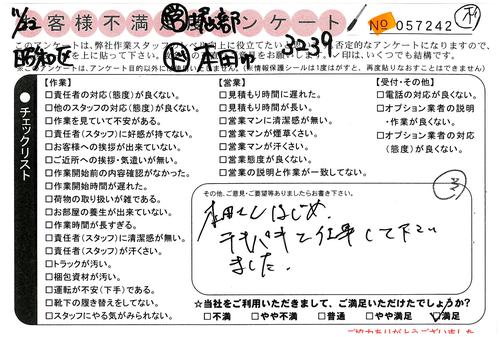 11/22 お客様不満足度アンケート No 057242
このアンケートは、弊社作業スタッフの
昭和区
本田 3239
※このアンケートは、アンケート目的以外には
(新情報保護シールは1度はがすと、再度貼りなおすことはできません)
チェックリスト
【作業】
□責任者の対応(態度)が良くない。
□他のスタッフの対応(態度)が良くない。
□作業を見ていて不安がある。
□責任者(スタッフ)に好感が持てない。
□お客様への挨拶が出来ていない。
□ご近所への挨拶・気遣いが無い。
□作業開始前の内容確認がなかった。
□作業開始時間が遅れた。
□荷物の取り扱いが雑である。
□お部屋の養生が出来ていない。
□作業時間が長すぎる。
□責任者(スタッフ)に清潔感が無い。
□責任者(スタッフ)が汗くさい。
□トラックが汚い。
□梱包資材が汚い。
□運転が不安(下手)である。
□靴下の履き替えをしてない。
□スタッフにやる気がみられない。
【営業】
□見積もり時間に遅れた。
□見積もり時間が長い。
□営業マンに清潔感が無い。
□営業マンが煙草くさい。
□営業マンが汗くさい。
□営業態度が良くない。
□営業の説明と作業が一致してない。
【受付・その他】
□電話の対応が良くない。
□オプション業者の説明
・作業が良くない。
□オプション業者の対応
(態度)が良くない。
その他、ご意見・ご要望等ありましたらお書き下さい。
本田さんはじめ、
テキパキと仕事して下さい
ました。
☆当社をご利用いただきまして、ご満足いただけたでしょうか?
□不満 □やや不満 □普通 □やや満足 ☑満足
ご協力ありがとうございました